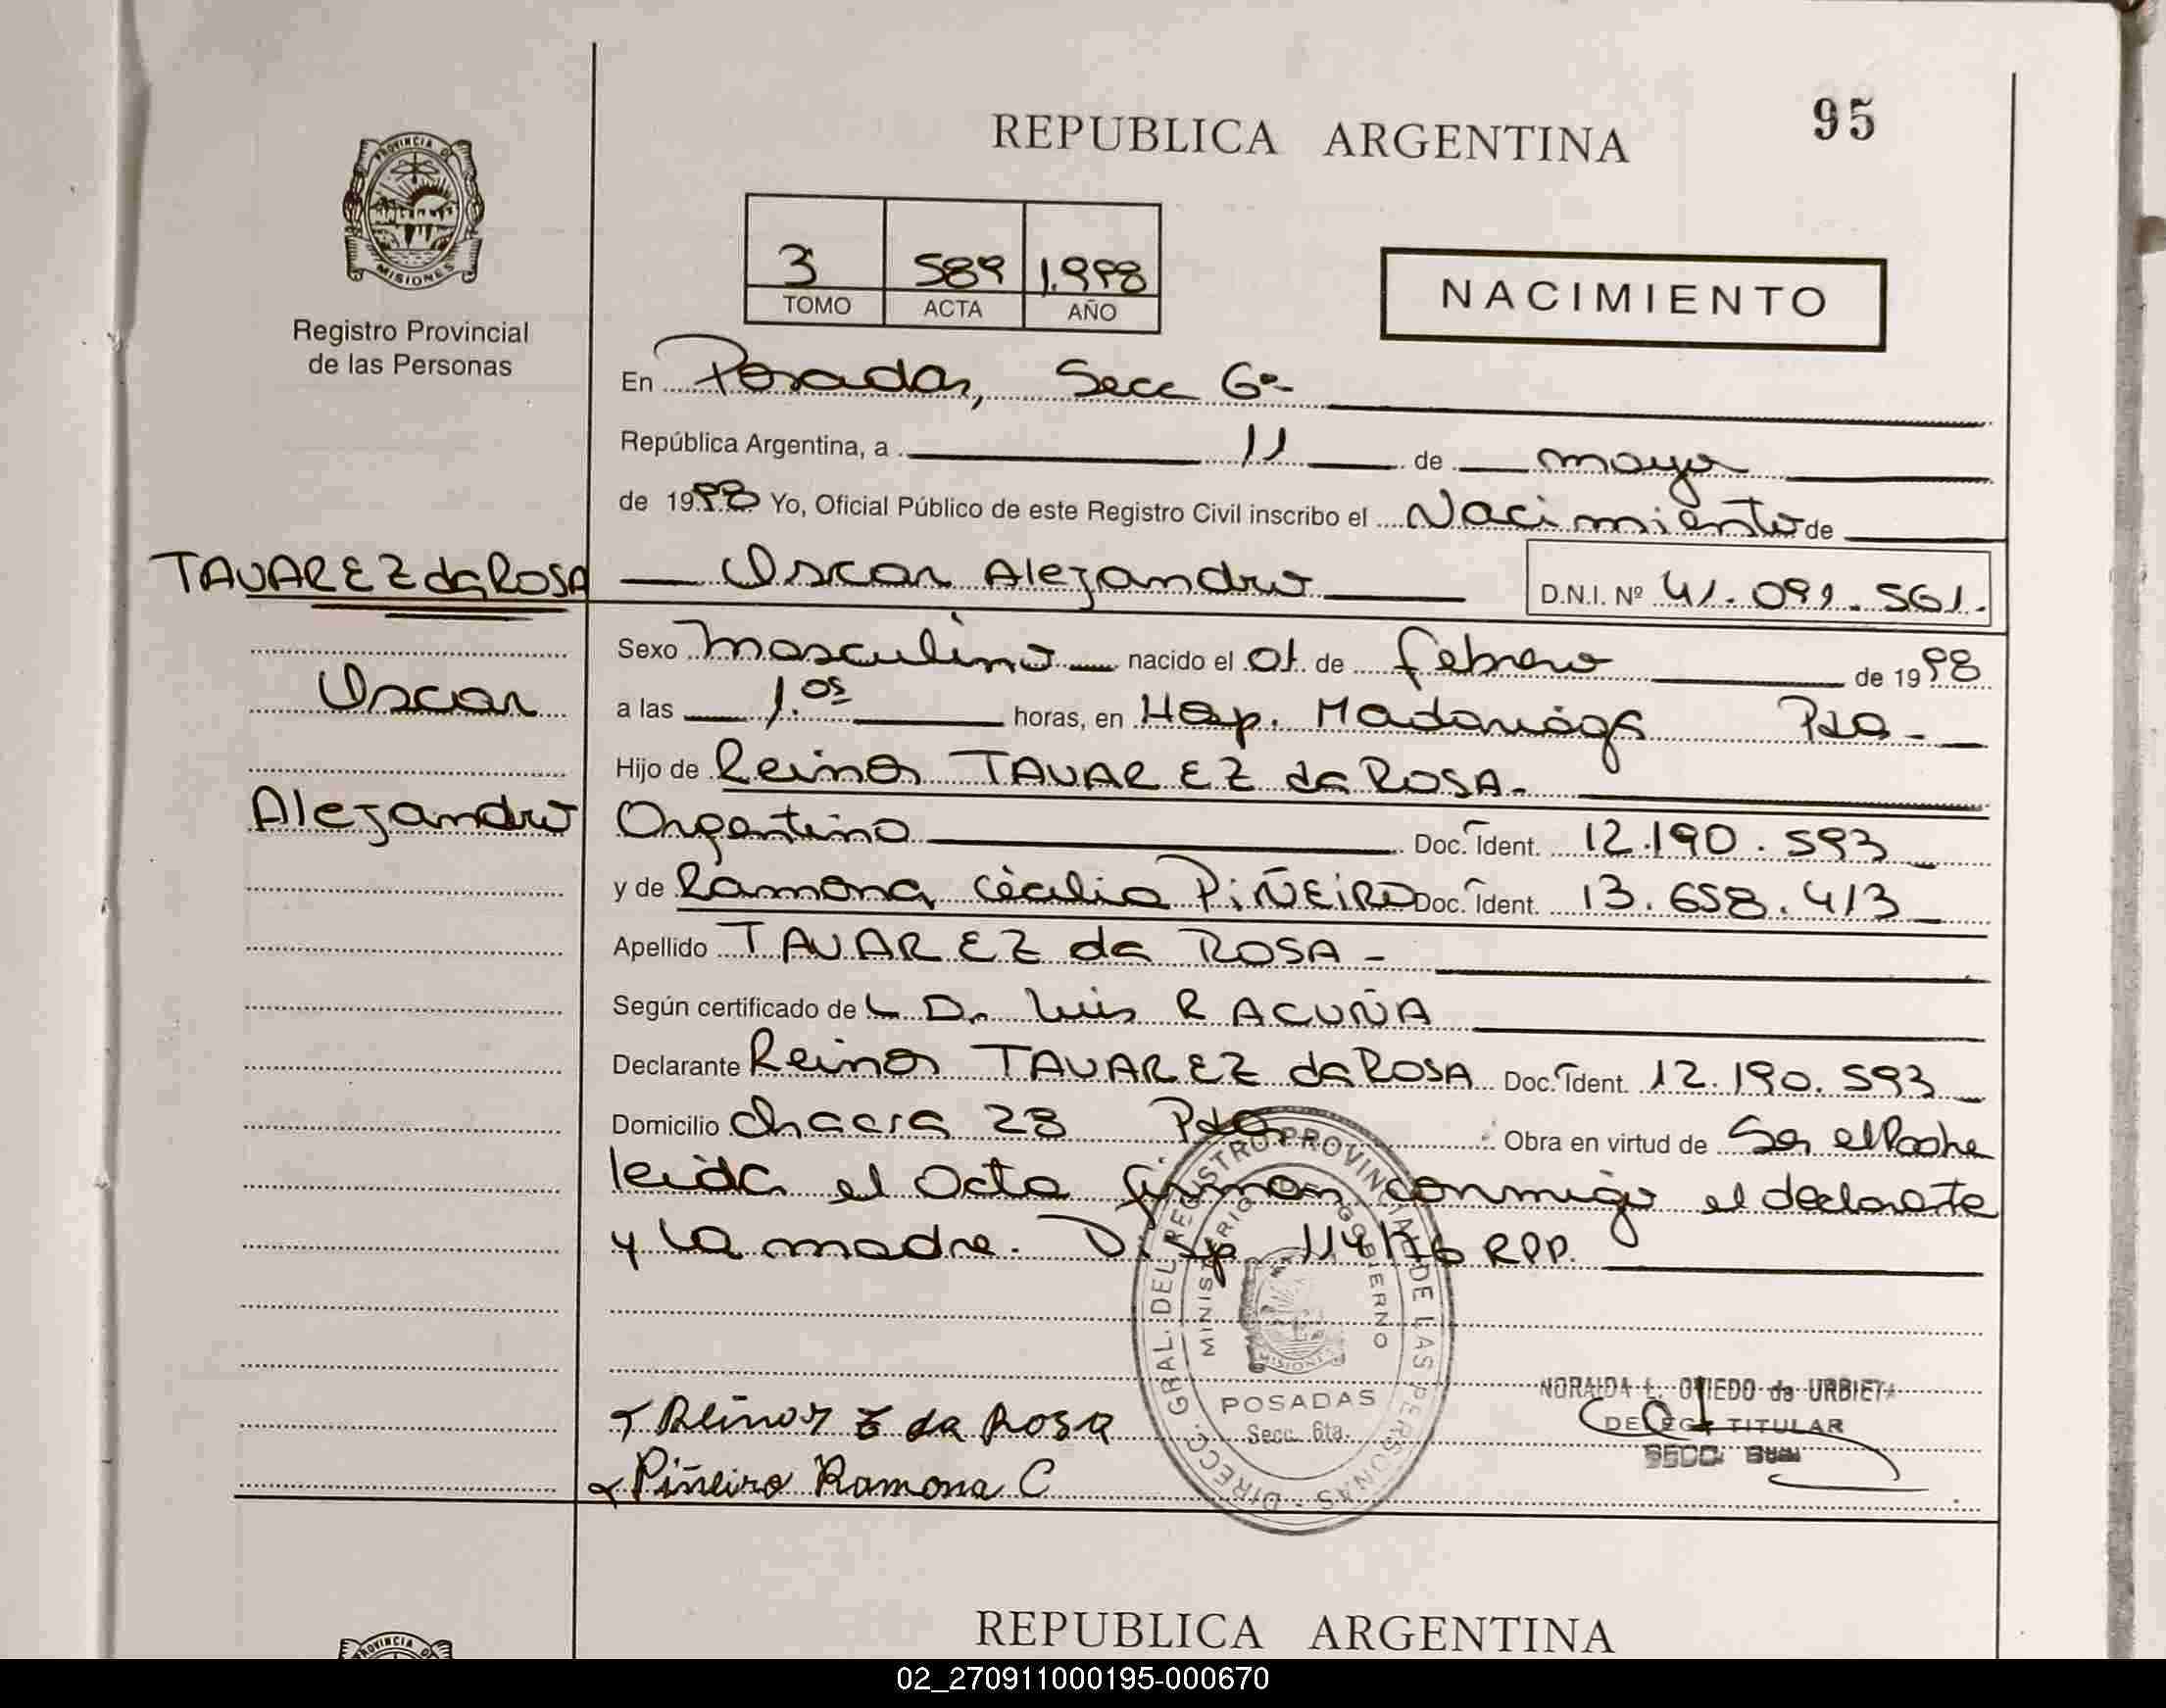 95
REPUBLICA ARGENTINA
PROVINCIA DE
MISIONES
Registro Provincial
de las Personas
3 589 1.998
TOMO ACTA AÑO
NACIMIENTO
En Posadas, Secc 6ª
República Argentina, a 11 de mayo
de 1998 Yo, Oficial Público de este Registro Civil inscribo el Nacimiento de
TAVAREZ da ROSA
Oscar Alejandro D.N.I. Nº 41.091.561.
Oscar
Alejandro
Sexo masculino nacido el 01 de febrero de 1998
a las 1.05 horas, en Hosp. Madariaga Pdas
Hijo de Reinos TAVAREZ da ROSA.
Argentina Doc. Ident. 12.190.593
y de Ramona Cecilia PIÑEIRO Doc. Ident. 13.658.413
Apellido TAVAREZ da ROSA
Según certificado de L Dr Luis R ACUÑA
Declarante Reinos TAVAREZ da ROSA Doc. Ident. 12.190.593
Domicilio Chacra 28 Pdas Obra en virtud de Ser el Padre
leida el Acta firman conmigo el declarante
y la madre. Disp 114/76 RPP.
DIRECC. GRAL. DEL REGISTRO PROVINCIAL DE LAS PERSONAS
MINISTERIO GOBIERNO
MISIONES
POSADAS
Secc. 6ta.
NORAIDA L. OVIEDO de URBIETA
DELEG. TITULAR
SECC.
da Rosa
Piñeiro Ramona C
REPUBLICA ARGENTINA
PROVINCIA
02_270911000195-000670